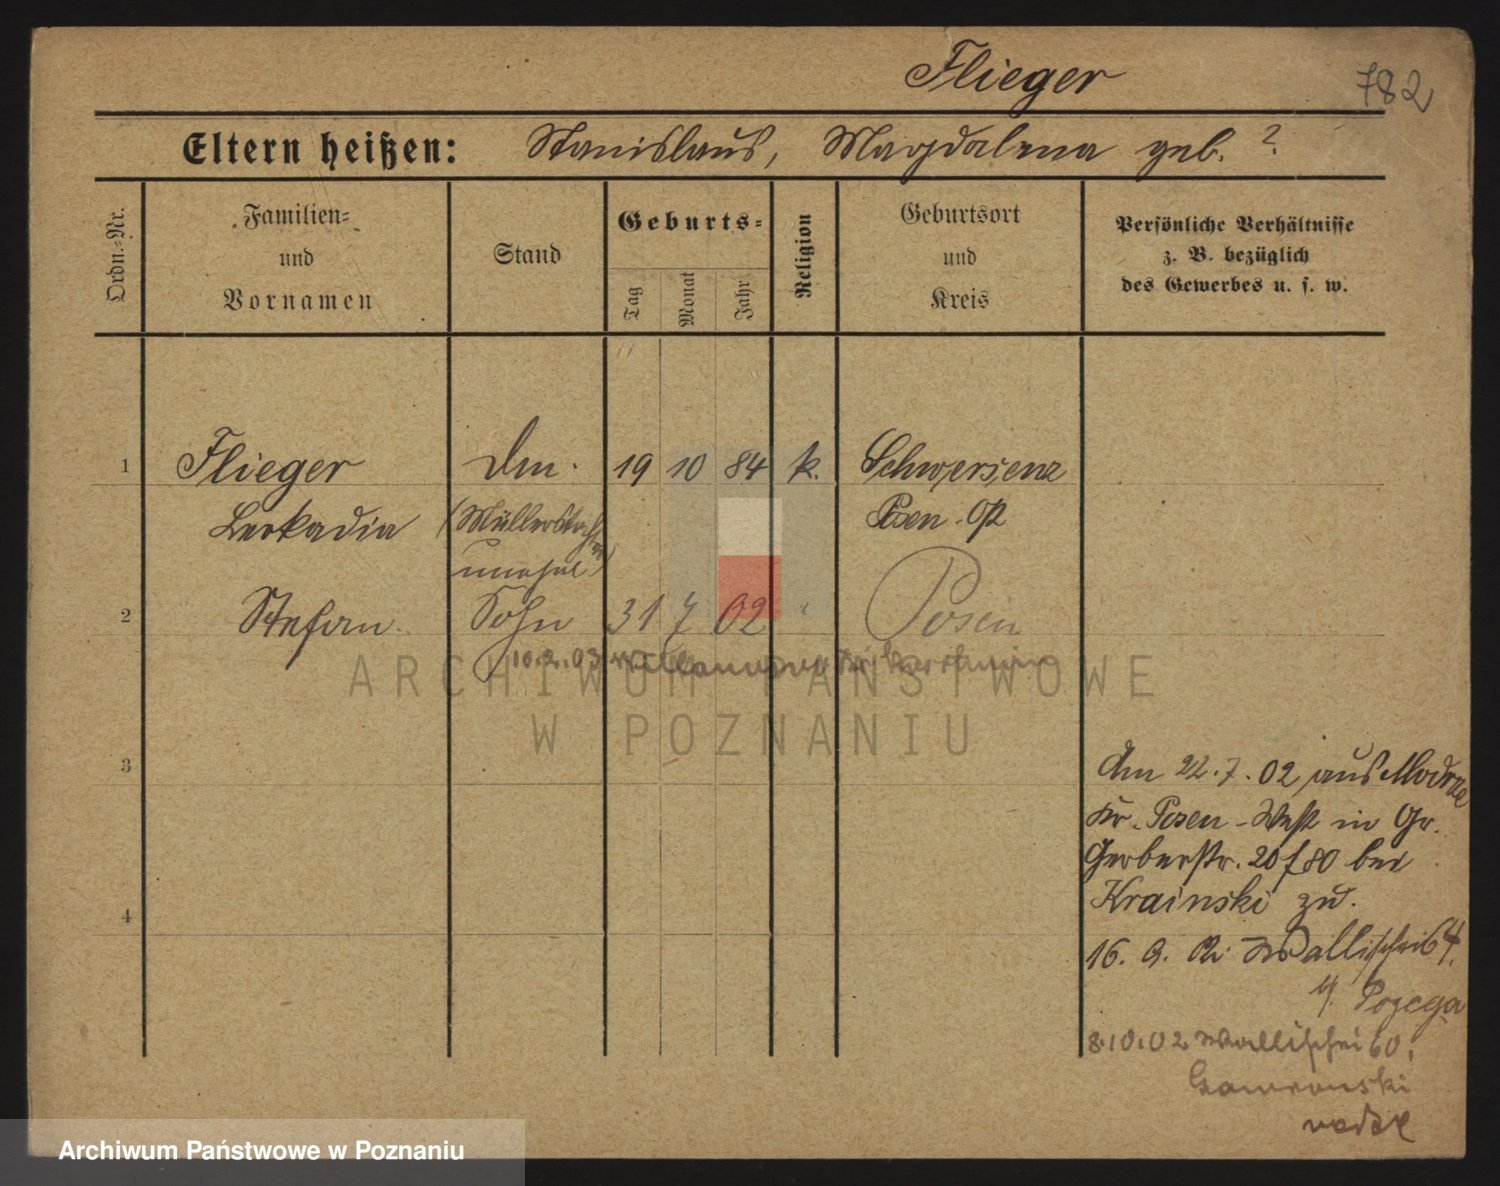 Flieger
782
Eltern heißen: Stanislaus, Magdalena geb. ?
Ordn.-Nr.
Familien-
und
Vornamen
Stand
Geburts-
Tag
Monat
Jahr
Religion
Geburtsort
und
Kreis
Persönliche Verhältnisse
z. B. bezüglich
des Gewerbes u. s. w.
1 Flieger 19 10 84 k. Schwersenz
Leokadia Posen. Ost
2 Stefan Sohn 31 7 02 Posen
10.2.03
3
4
Am 22.7.02 aus Modrze
Kr. Posen-West in Gr.
Gerberstr. 20 f 80 bei
Krainski zu.
16. 9. 02 Wallischei 64,
b/. Pozega
8.10.02 Wallischei 60,
Gawronski
ARCHIWUM PAŃSTWOWE
W POZNANIU
Archiwum Państwowe w Poznaniu